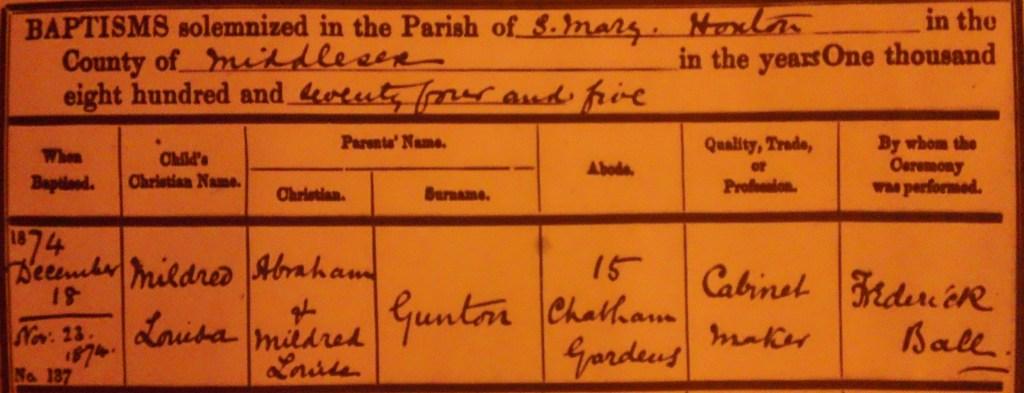 BAPTISMS solemnized in the Parish of S. Mary. Hoxton in the
County of Middlesex in the years One thousand
eight hundred and seventy four and five
When
Baptised.
Child's
Christian Name.
Parents' Name.
Christian.
Surname.
Abode.
Quality, Trade,
or
Profession.
By whom the
Ceremony
was performed.
1874
December
18
Nov: 23.
1874.
No. 137
Mildred
Louisa
Abraham
&
Mildred
Louisa
Gunton
15
Chatham
Gardens
Cabinet
Maker
Frederick
Ball.